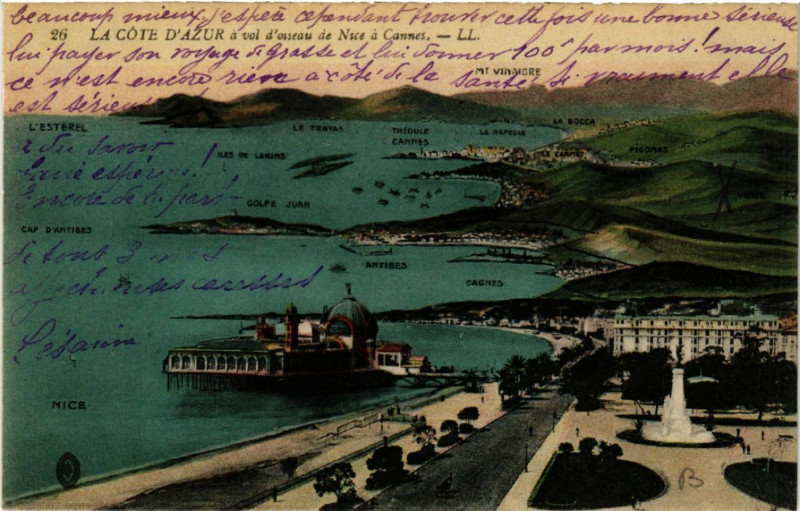 beaucoup mieux, j'espère cependant trouver cette fois une bonne sérieuse
26 LA CÔTE D'AZUR à vol d'oiseau de Nice à Cannes. — LL.
lui payer son voyage de Grasse et lui donner 100f par mois! mais
MT VINAIGRE
ce n'est encore rien à côté de la santé. Si vraiment elle
est sérieuse
L'ESTÉREL
LE TRAYAS
THÉOULE
LA NAPOULE
LA BOCCA
CANNES
a du savoir
ILES DE LERINS
LE CANNET
PEGOMAS
faire espérer!
Encore de
GOLFE JUAN
CAP D'ANTIBES
de tout
ANTIBES
CAGNES
caresses
NICE
B